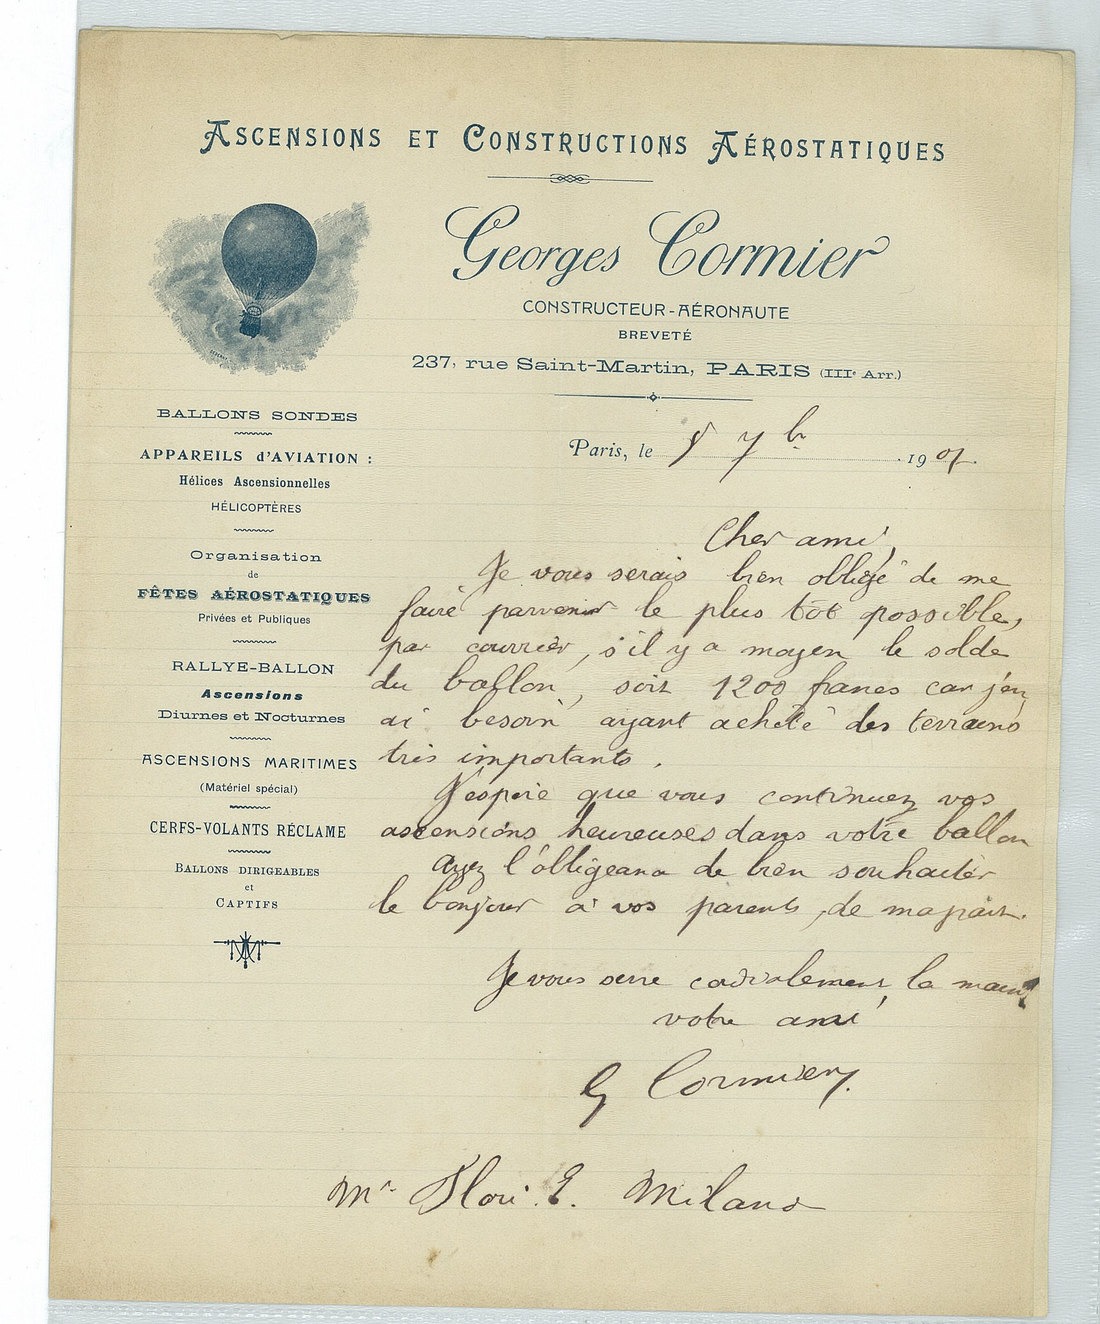 ASCENSIONS ET CONSTRUCTIONS AÉROSTATIQUES
Georges Cormier
CONSTRUCTEUR-AÉRONAUTE
BREVETÉ
237, rue Saint-Martin, PARIS (IIIe Arr.)
BALLONS SONDES
APPAREILS d'AVIATION :
Hélices Ascensionnelles
HÉLICOPTÈRES
Organisation
de
FÊTES AÉROSTATIQUES
Privées et Publiques
RALLYE-BALLON
Ascensions
Diurnes et Nocturnes
ASCENSIONS MARITIMES
(Matériel spécial)
CERFS-VOLANTS RÉCLAME
BALLONS DIRIGEABLES
et
CAPTIFS
Paris, le 7 br 1907.
Cher ami,
Je vous serais bien obligé de me
faire parvenir le plus tôt possible,
par courrier, s'il y a moyen le solde
du ballon, soit 1200 francs car j'en
ai besoin ayant acheté des terrains
très importants.
J'espère que vous continuez vos
ascensions heureuses dans votre ballon
Ayez l'obligeance de bien souhaiter
le bonjour à vos parents, de ma part.
Je vous serre cordialement la main,
votre ami
G Cormier
Mr Flori. E. Milano